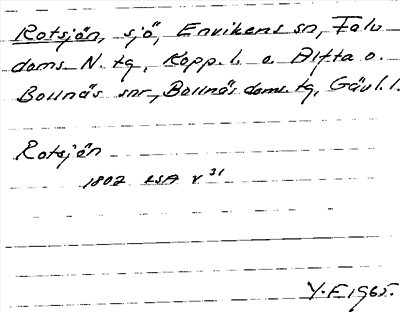 Rotsjön, sjö, Envikens sn, Falu
doms N. tg, Kopp. l. o. Alfta o.
Bollnäs snr, Bollnäs doms. tg, Gävl. l.
Rotsjön
1802 LSA V 31
Y.E 1965.